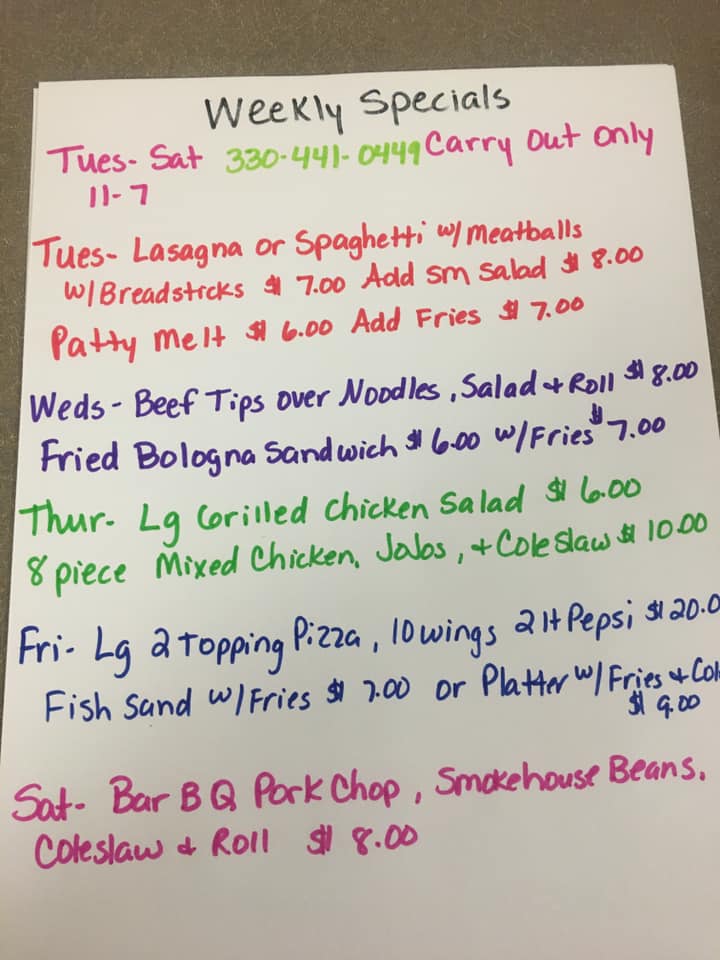 Weekly Specials
Tues- Sat 330-441-0449 Carry Out Only
11-7
Tues- Lasagna or Spaghetti w/ meatballs
w/Breadsticks $ 7.00 Add sm Salad $ 8.00
Patty melt $ 6.00 Add Fries $ 7.00
Weds- Beef Tips over Noodles, Salad + Roll $ 8.00
Fried Bologna Sandwich $ 6.00 w/Fries $ 7.00
Thur- Lg Grilled Chicken Salad $ 6.00
8 piece Mixed Chicken, JoJos, + Cole slaw $ 10.00
Fri- Lg 2 Topping Pizza, 10 wings 2 lt Pepsi $ 20.0
Fish Sand w/Fries $ 7.00 or Platter w/Fries + Col
$ 9.00
Sat- Bar B Q Pork Chop, Smokehouse Beans,
Coleslaw + Roll $ 8.00